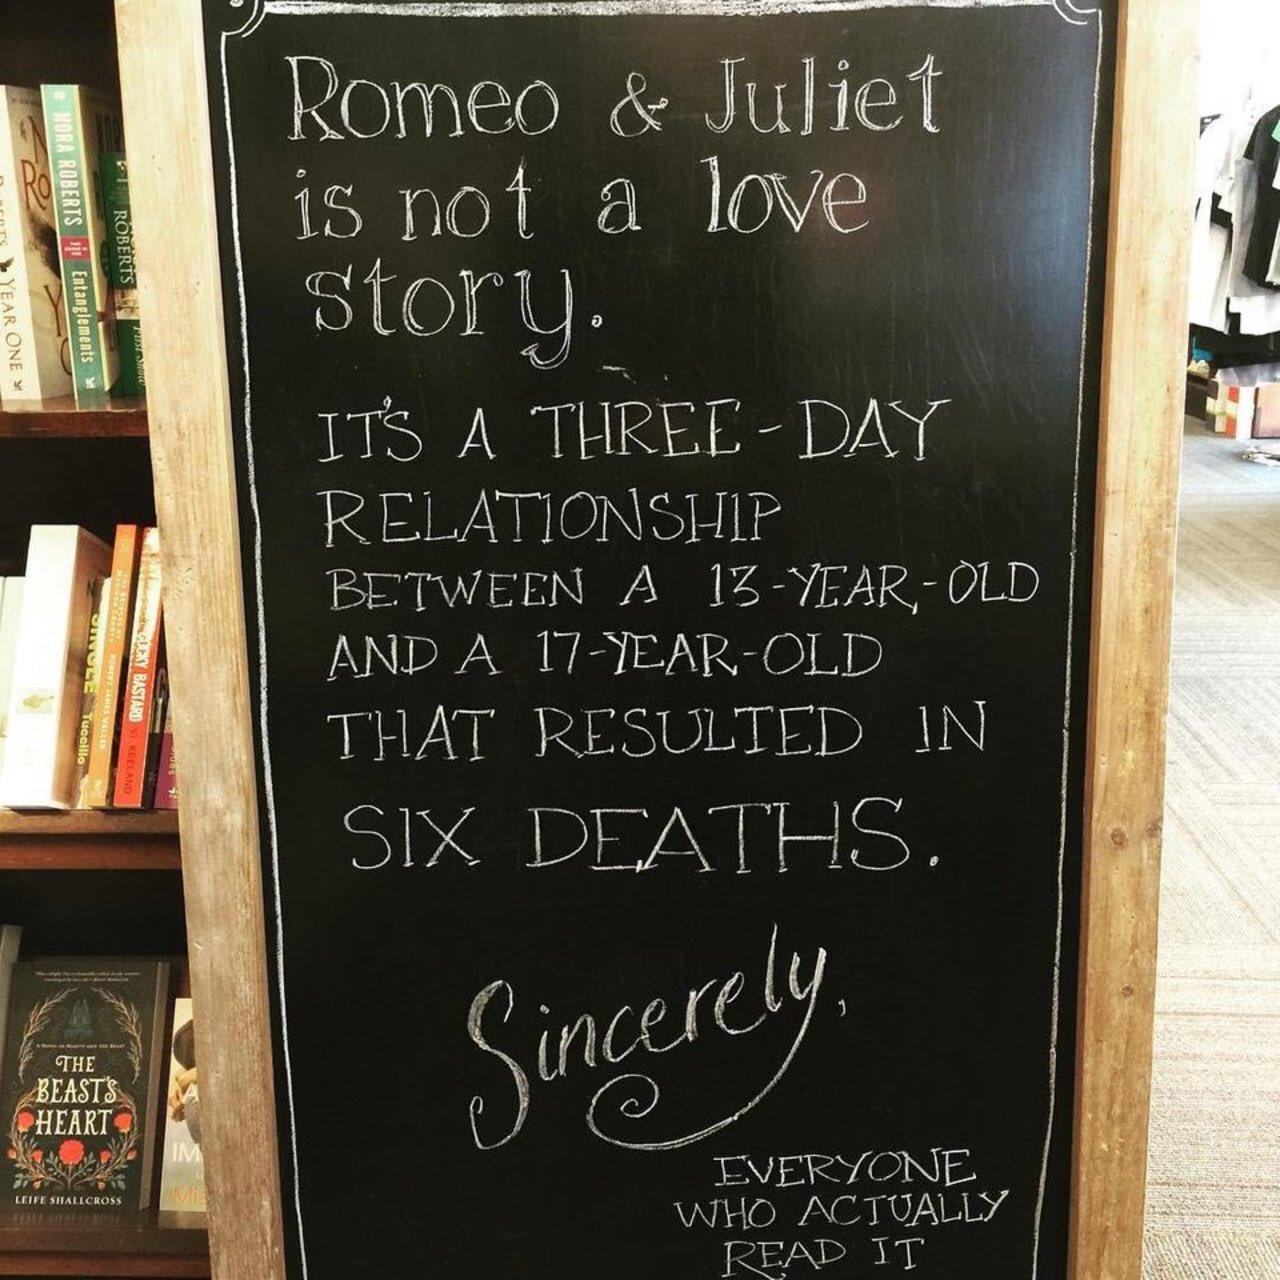 Romeo & Juliet
is not a love
story.
IT'S A THREE-DAY
RELATIONSHIP
BETWEEN A 13-YEAR-OLD
AND A 17-YEAR-OLD
THAT RESULTED IN
SIX DEATHS.
Sincerely,
EVERYONE
WHO ACTUALLY
READ IT
YEAR ONE
NORA ROBERTS
Entanglements
ROBERTS
Tuccillo
ROBERT JAMES WALLER
BASTARD VI KEELAND
THE
BEAST'S
HEART
LEIFE SHALLCROSS